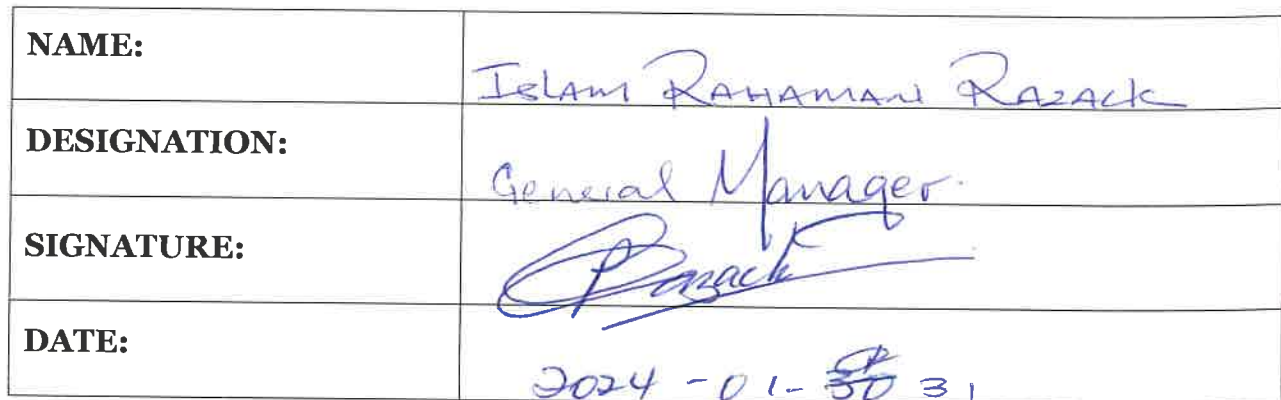 NAME: Islam Rahaman Razack
DESIGNATION: General Manager.
SIGNATURE: Razack
DATE: 2024-01-30 31